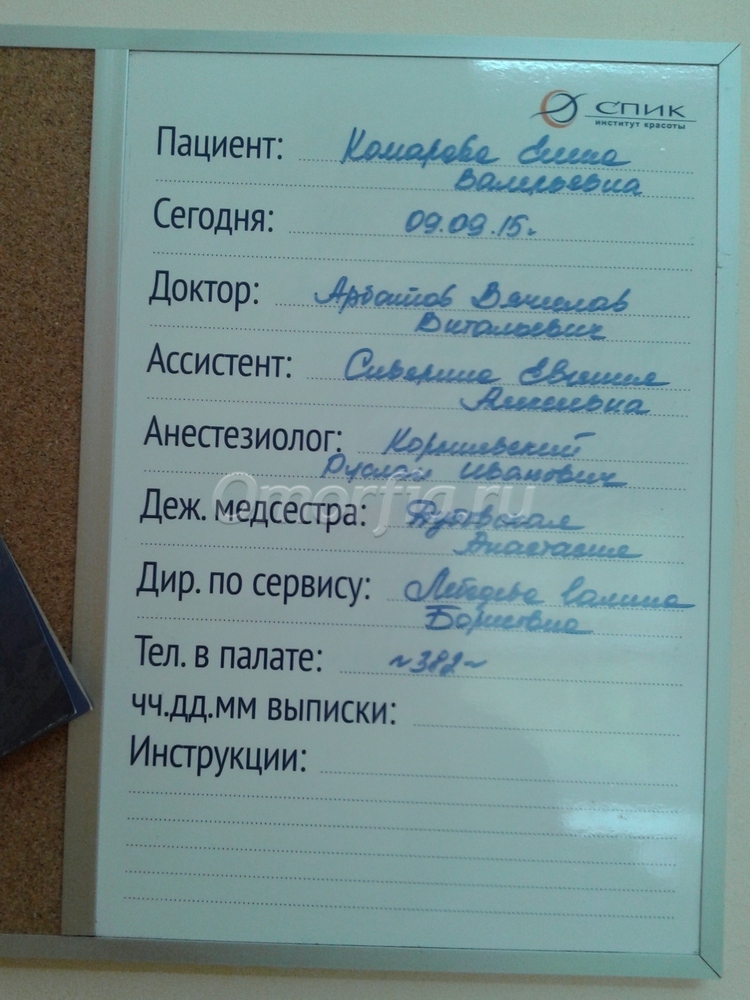 СПИК
институт красоты
Пациент: Комарова Елена
Валерьевна
Сегодня: 09.09.15.
Доктор: Арбатов Вячеслав
Витальевич
Ассистент: Сиверина Евгения
Анестезиолог: Корнилевский
Руслан Иванович
Omorfia.ru
Деж. медсестра:
Анастасия
Дир. по сервису: Лебедева Галина
Борисовна
Тел. в палате: ~382~
чч.дд.мм выписки:
Инструкции: